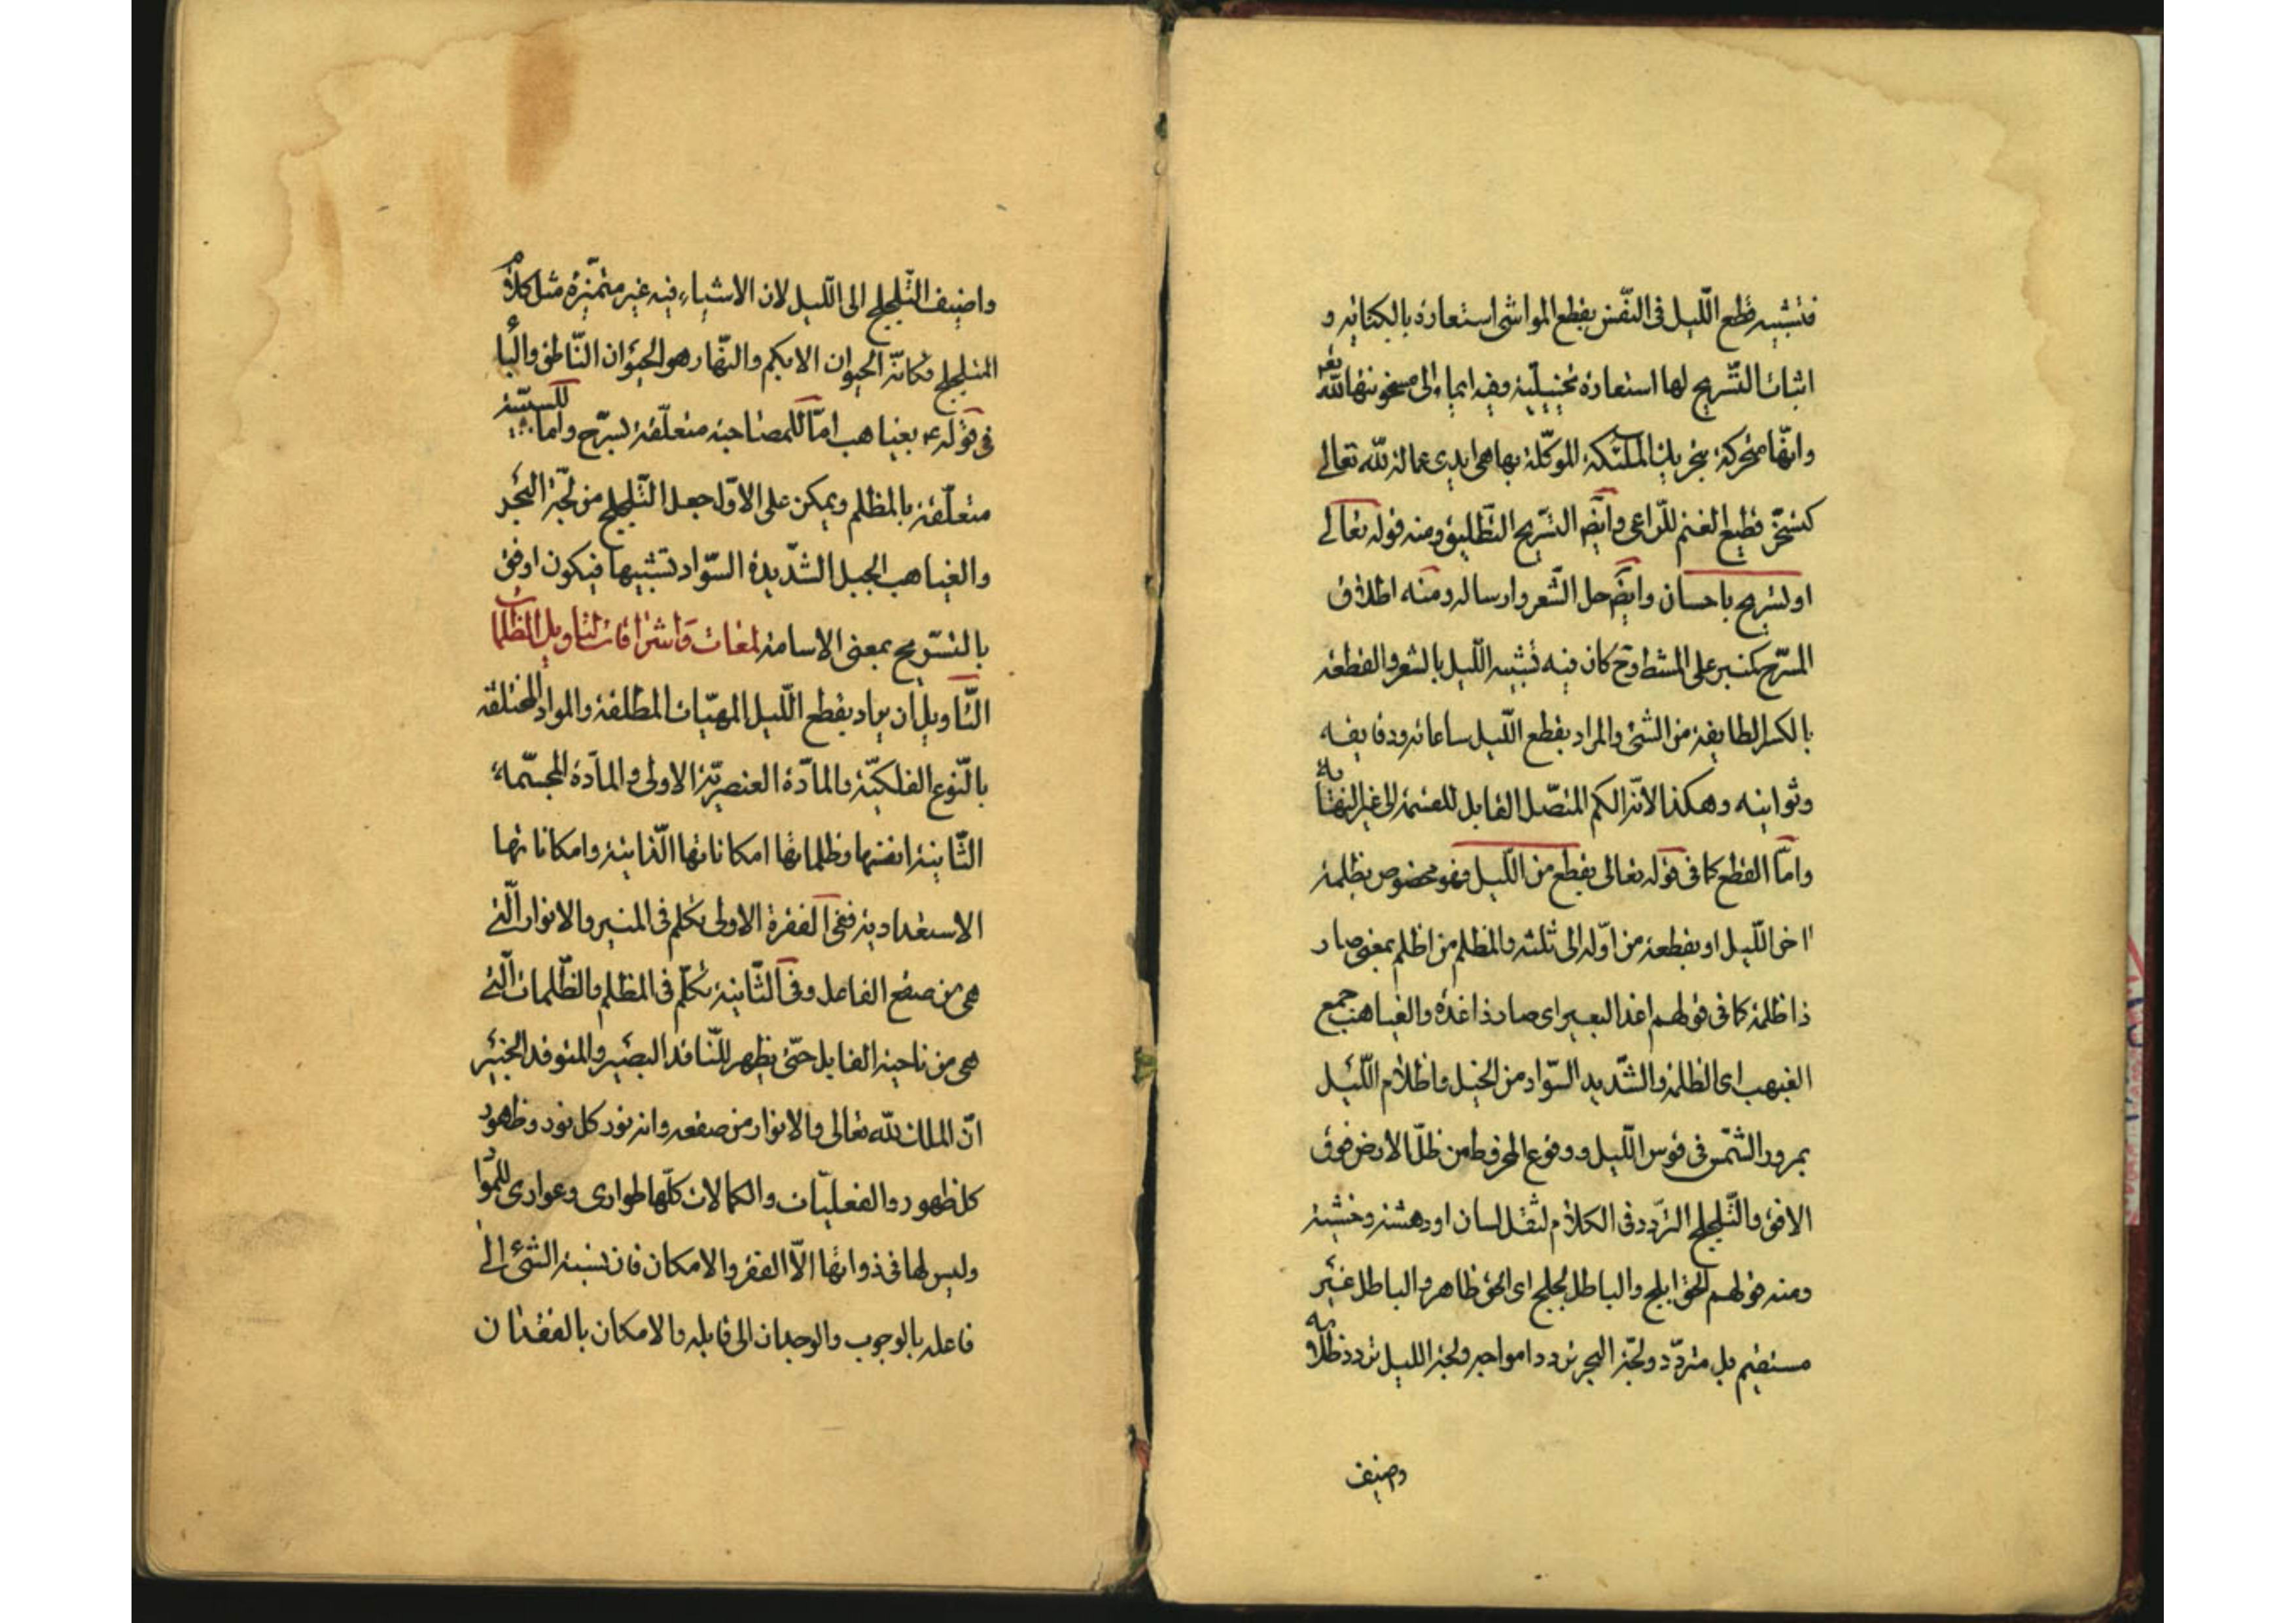 فتشبيه قطع اللّيل فى النّفس بقطع المواشى استعارة بالكناية و
اثبات التّسريح لها استعارة تخييليّة وفيه ايماء الى مسخريتها لله تعا
وانّها متحركة بتحريك الملئكة الموكّلة بها هى ايدى عمالة لله تعالى
كتسخّر قطيع الغنم للرّاعى وايضا التسريح التطليق ومنه قوله تعالى
او تسريح باحسان وايضا حل الشّعر وارساله ومنه اطلاق
المسرّح كمنبر على المشط وح كان فيه تشبيه اللّيل بالشعر والقطعة
بالكسر الطايفة من الشئ والمراد بقطع اللّيل ساعاته ودقايقه
وثوانيه وهكذا لانّه الكم المتصّل القابل للقسمة الى غير النهاية
وامّا القطع كما فى قوله تعالى بقطع من اللّيل فهو مخصوص بظلمة
اخر اللّيل او بقطعة من اوّله الى ثلثه والمظلم من اظلم بمعنى صار
ذا ظلمة كما فى قولهم اغد البعير اى صار ذا غدة والغياهب جمع
الغيهب اى الظلمة والشّديد السّواد من الخيل واظلام اللّيل
بمرور الشّمس فى قوس اللّيل ووقوع المخروط من ظلّ الارض فوق
الافق والتّلجلج التردّد فى الكلام لثقل لسان او دهشة وخشية
ومنه قولهم الحق ابلج والباطل لجلج اى الحق ظاهر والباطل غير
مستقيم بل متردّد ولجّة البحر تردد امواجه ولجة الليل تردد ظلامه
واضيف
واضيف التّلجلج الى اللّيل لان الاشياء فيه غير متميّزة مثل كلام
المتلجلج فكانّه الحيوان الابكم والنّهار هو الحيوان النّاطق والباء
فى قوله ع بغياهب امّا للمصاحبة متعلّقة بسرّح واما للسببيّة
متعلّقة بالمظلم ويمكن على الاوّل جعل التّلجلج من لجّة البحر
والغياهب الخيل الشّديدة السّواد تشبيها فيكون اوفق
بالتسّريح بمعنى الاسامة لمعات واشراقات لتاويل المظلمات
التّاويل ان يراد بقطع اللّيل المهيّات المطلقة والمواد المختلفة
بالنّوع الفلكيّة والمادّة العنصريّة الاولى والمادة المجسّمة
الثّانية انفسها وظلماتها امكاناتها الذّاتية وامكاناتها
الاستعدادية ففى الفقرة الاولى تكلم فى المنير والانوار الّتى
هى من صقع الفاعل وفى الثّانية تكلّم فى المظلم والظّلمات الّتى
هى من ناحية القابل حتّى يظهر للنّاقد البصير والمتوقد الخبير
انّ الملك لله تعالى والانوار من صقعه وانه نور كل نور وظهور
كل ظهور والفعليّات والكمالات كلّها طوارى وعوارى للموّاد
وليس لها فى ذواتها الّا الفقر والامكان فان نسبة الشئ الى
فاعله بالوجوب والوجدان الى قابله والامكان بالفقدان